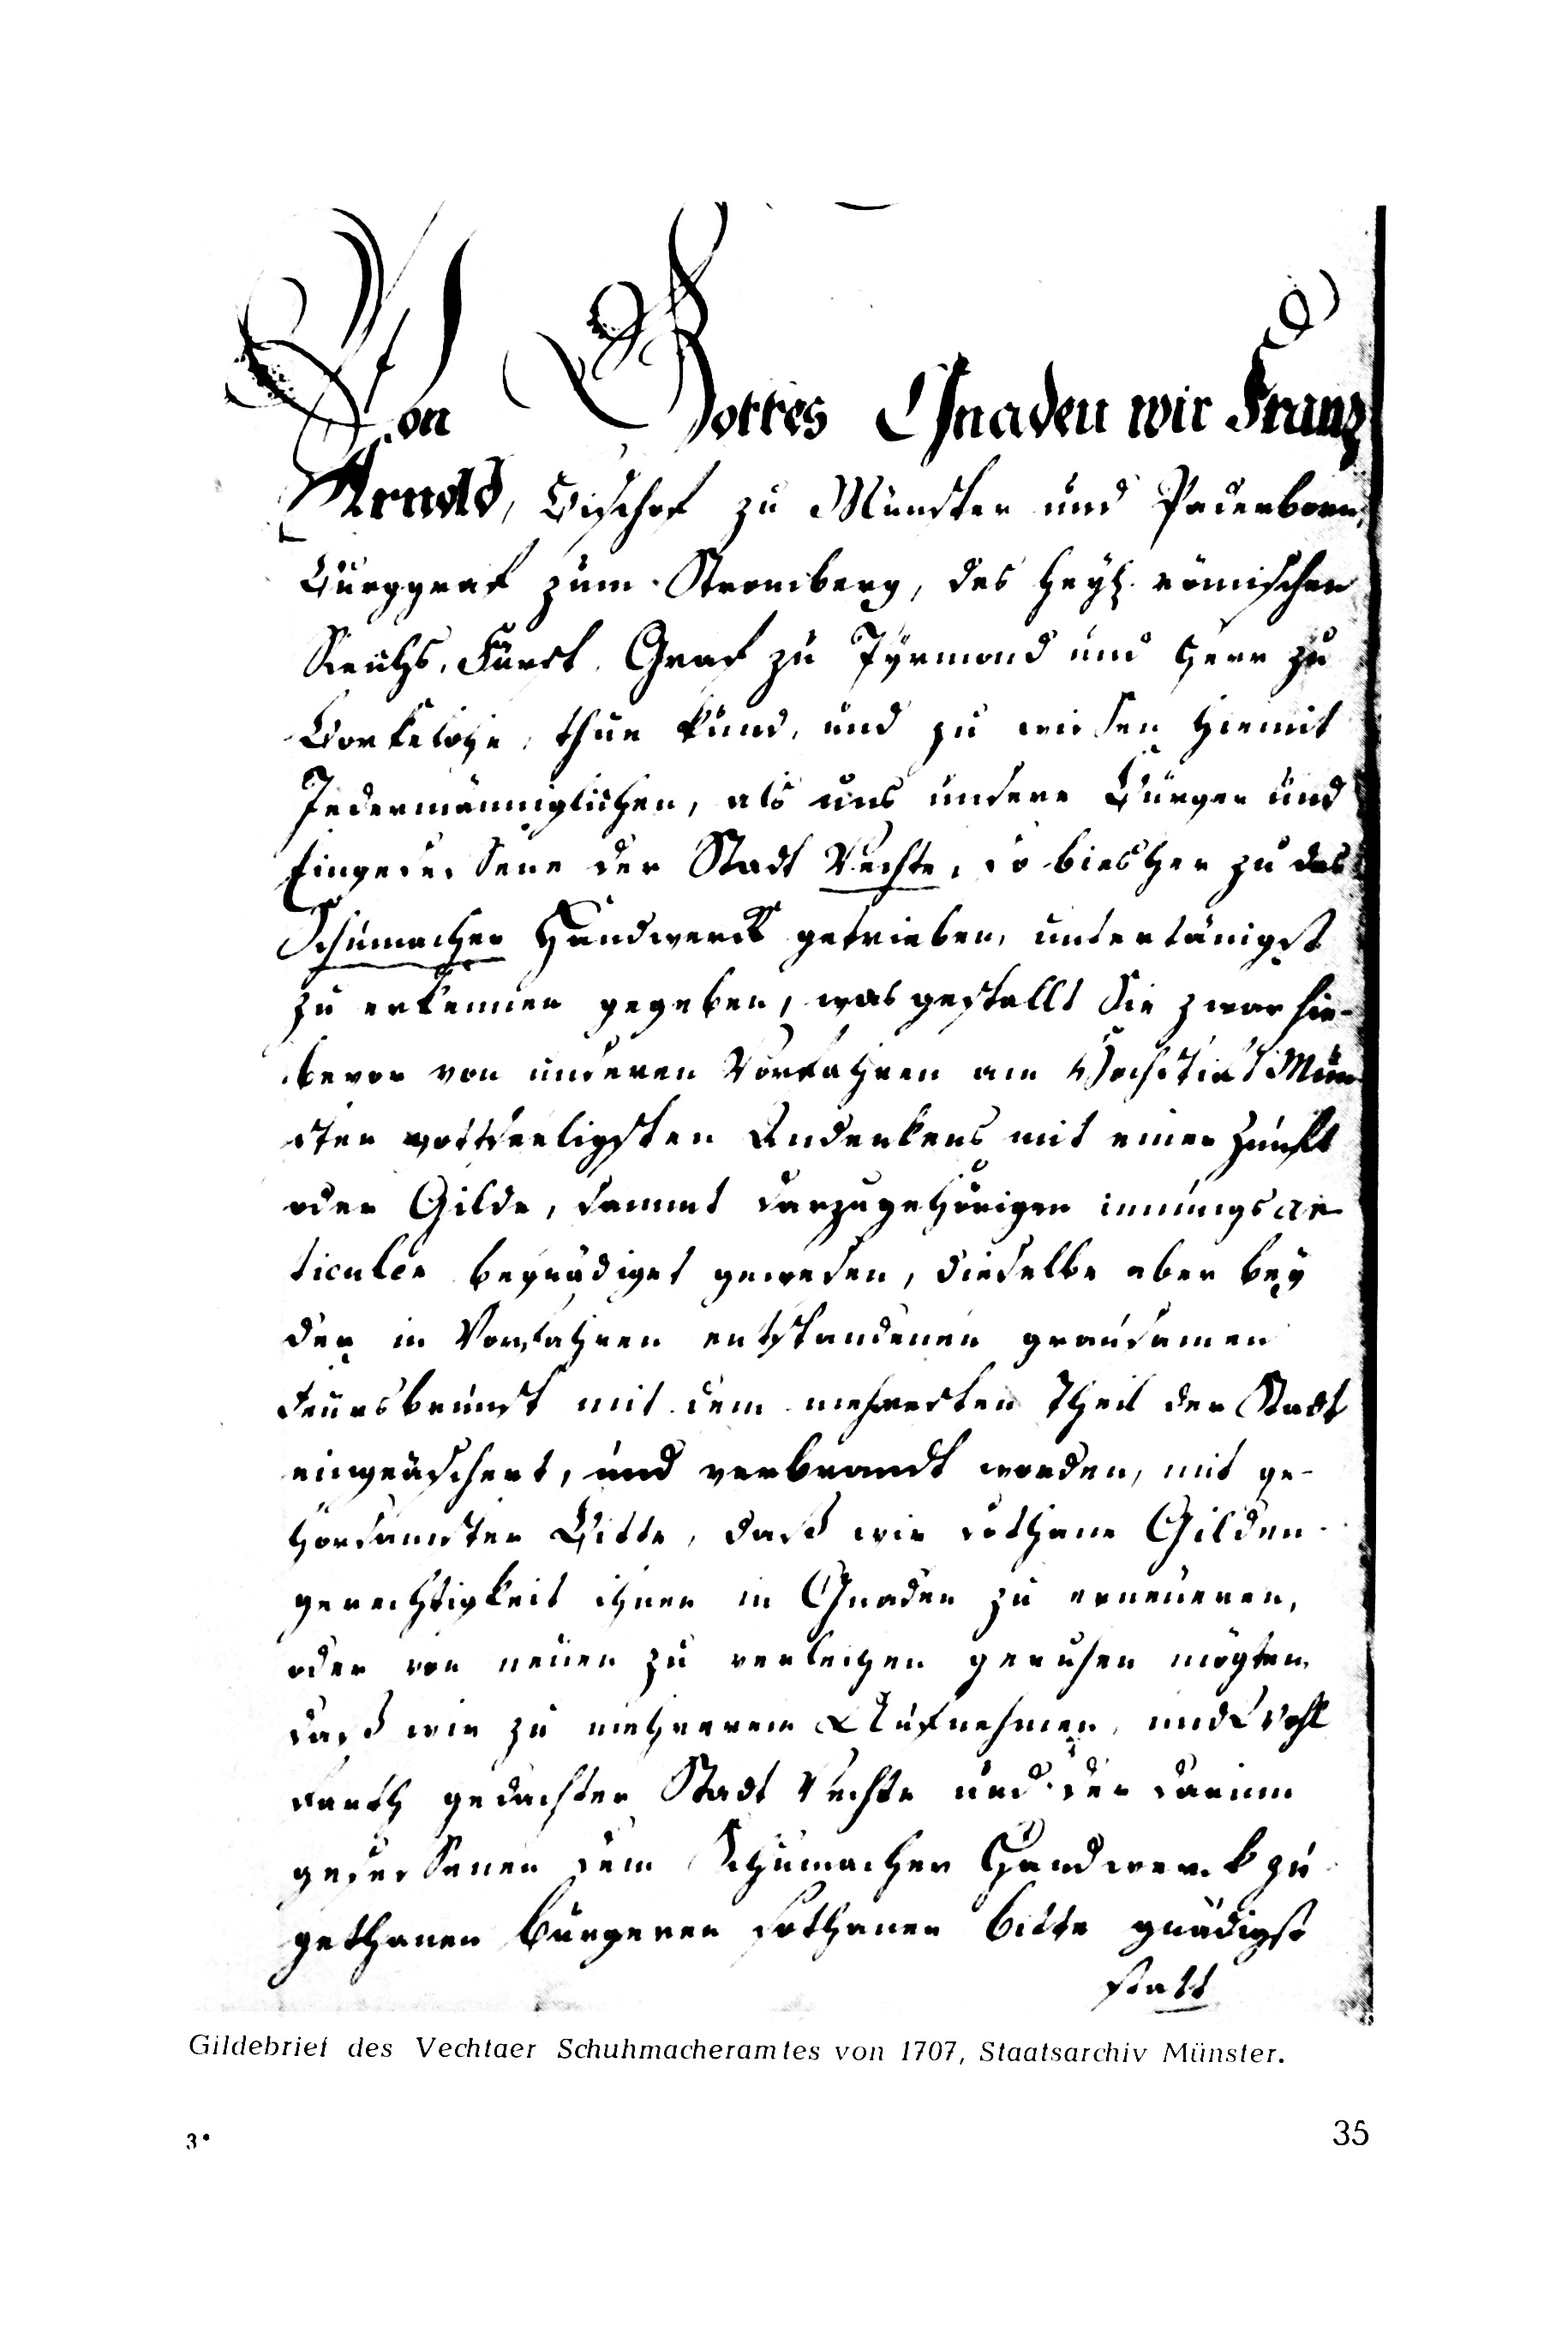 Von Gottes Gnaden wir Franz
Arnold, Bischof zu Münster und Paderborn,
Burggraf zum Stromberg, des heyl. römischen
Reichs, Fürst, Graf zu Pyrmond und Herr zu
Borkelohe, thun kund, und zu wissen hiemit
Jedermänniglichen, als uns unsere Bürger und
Eingesessene der Stadt Vechte, so biesher zu das
Schumacher Handwerck getrieben, untertänigst
zu erkennen gegeben, was gestallt Sie zwar hie-
bevor von unseren Vorfahren am Hochstift Mün
ster gottseeligsten Andenkens mit einer Zunft
oder Gilde, sammt darzugehörigen innungs ar
ticulen begnädiget gewesen, dieselbe aber bey
der in Vorjahren entstandenen grausamen
Feursbrunst mit dem mehresten Theil der Stadt
eingeäschert, und verbrandt worden, mit ge-
horsamster Bitte, daß wir sothane Gilden
gerechtigkeit ihnen in Gnaden zu erneueren,
oder von neuen zu verleihen geruhen mögten,
daß wir zu mehrerem Aufnehmen, und Wohl
farth gedachter Stadt Vechte und der darinn
gesessenen dem Schumacher Handwerck zu
gethanen bürgeren sothanen bitte gnädigst
statt
Gildebrief des Vechtaer Schuhmacheramtes von 1707, Staatsarchiv Münster.
3*
35